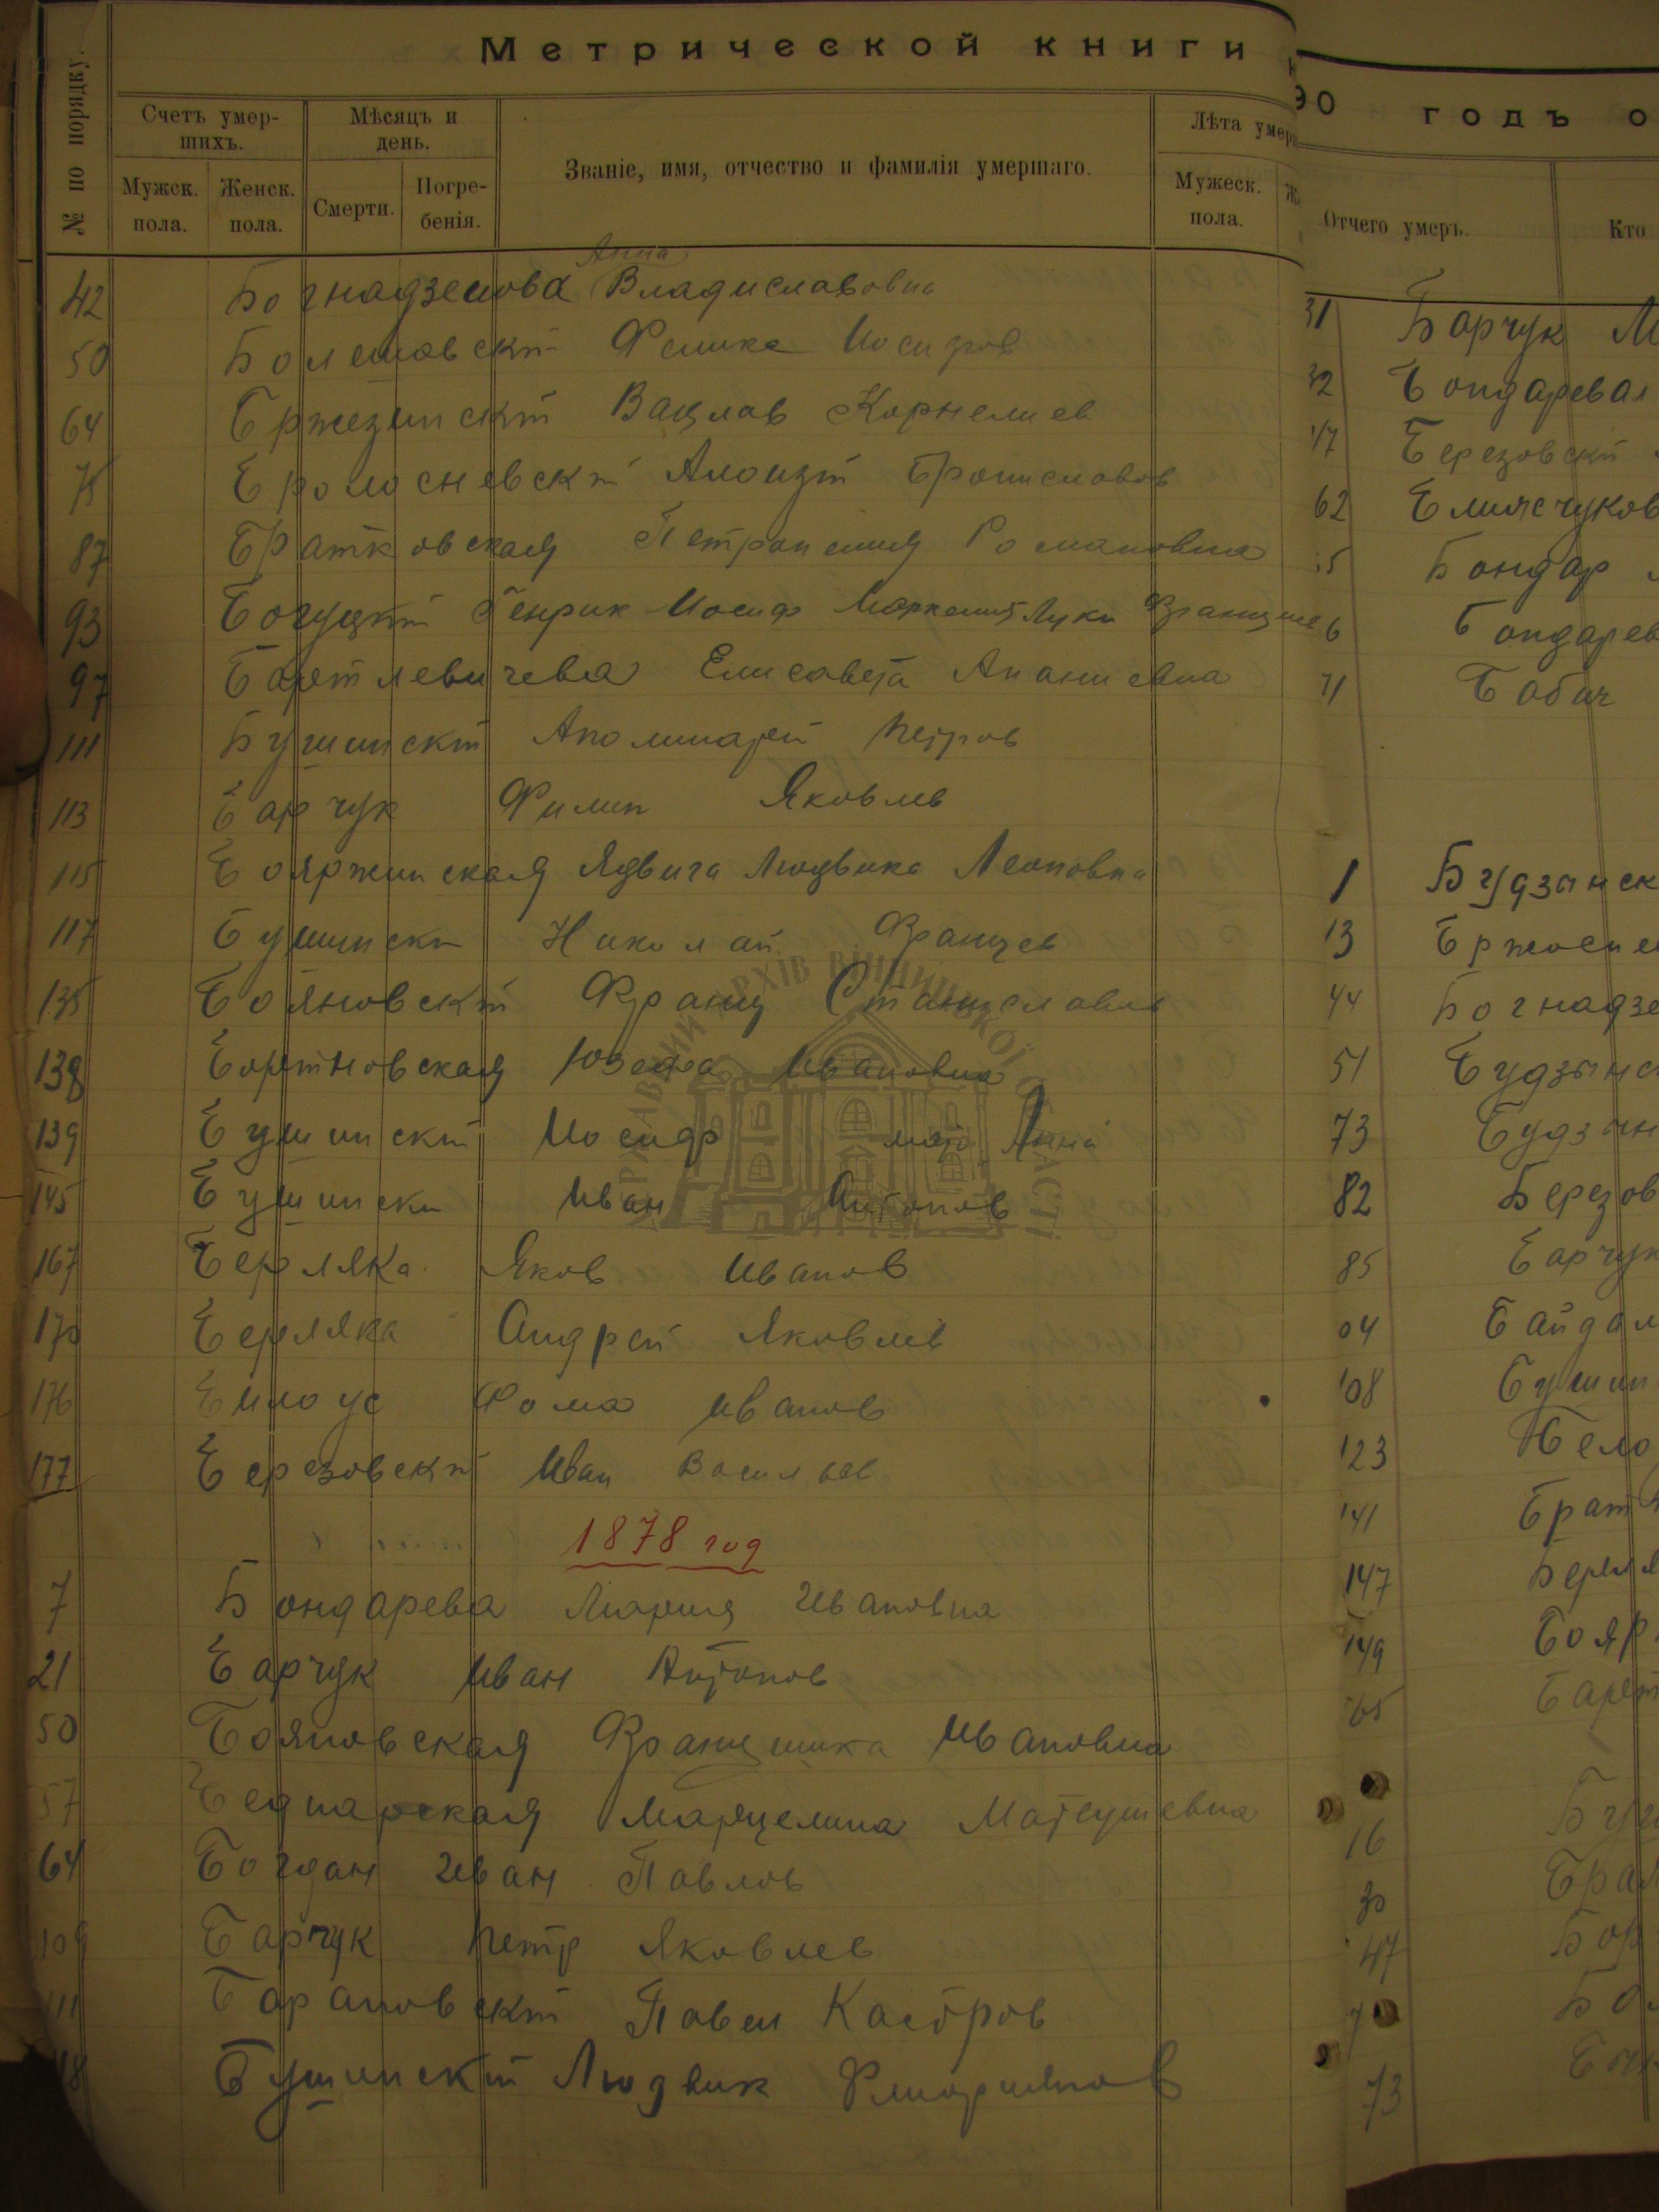 Метрической книги
№ по порядку.
Счетъ умер-
шихъ.
Мѣсяцъ и
день.
Званіе, имя, отчество и фамилія умершаго.
Лѣта умер
Мужск.
пола.
Женск.
пола.
Смерти.
Погре-
бенія.
Мужеск.
пола.
Анна
42 Богнадзенова Владиславовна
50 Болешавскій Феликс Иосифов
64 Бржезинскій Вацлав Корнелиев
75 Алоизій Брониславов
87 Братковская Петронелия Романовна
93 Богуцкій Генрик Иосиф Луки Франциш
97 Бартлевичева Елисавета Ананиевна
111 Бушинскій Аполинарей Петров
113 Барчук Филип Яковлев
115 Бояржинская Ядвига Людвика Леоновна
117 Бушински Николай Францев
135 Бояновскій Франц Станиславов
138 Бортновская Юзефа Ивановна
139 Бушинскій Иосиф мать Анна
145 Бушински Иван Антонов
167 Берляка Яков Иванов
170 Берляка Андрей Яковлев
176 Билоус Фома Иванов
177 Березовскій Иван Васильев
1878 год
7 Бондарева Мария Ивановна
21 Барчук Иван Антонов
50 Бояновская Францишка Ивановна
57 Беднарская Марцелина Матеушевна
64 Богдан Иван Павлов
109 Барчук Петр Яковлев
111 Барановскій Павел Касپров
18 Бушинскій Людвик Флориянов
90 годъ о
Отчего умеръ.
Кто
31 Барчук М
32 Бондаревая
47 Березовскій
62
Бондар
6 Бондарев
71 Бабич
1 Будзынск
13
44 Богнадзе
51 Будзынс
73 Будзын
82 Березов
85 Барчук
04 Байдал
108 Бушин
123 Бело
141 Брат
147 Берля
149 Бояр
65 Барт
16
30
47 Бор
73
ДЕРЖАВНИЙ АРХІВ ВІННИЦЬКОЇ ОБЛАСТІ